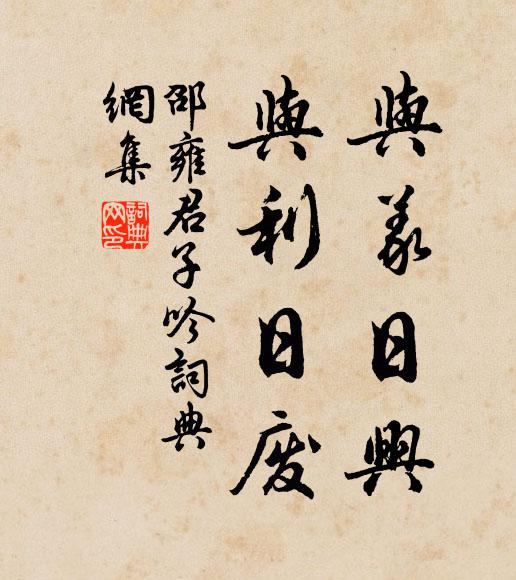 與義日興
與利日廢
邵雍君子吟詞典
網集
詞典
网印